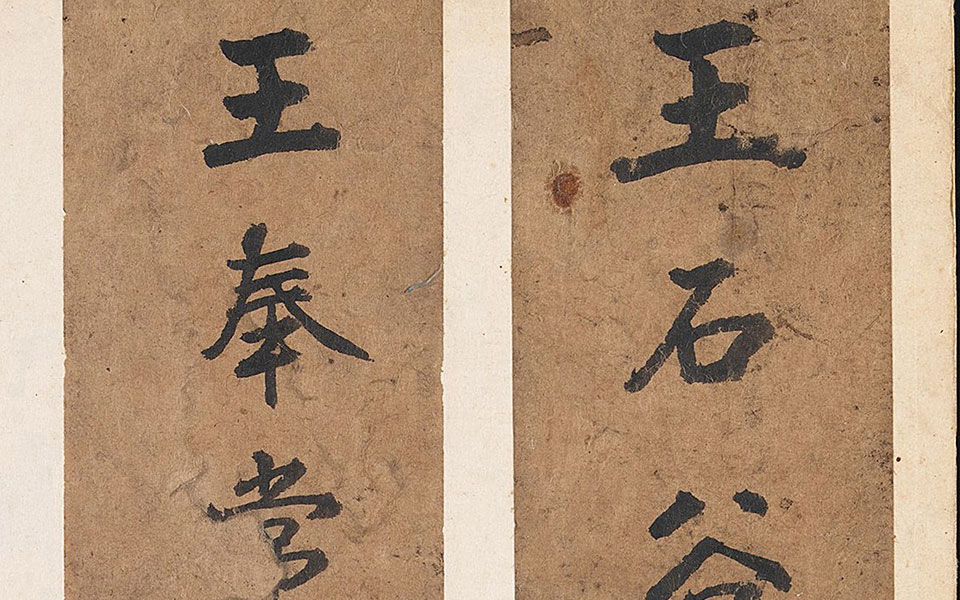 王石谷
王奉常